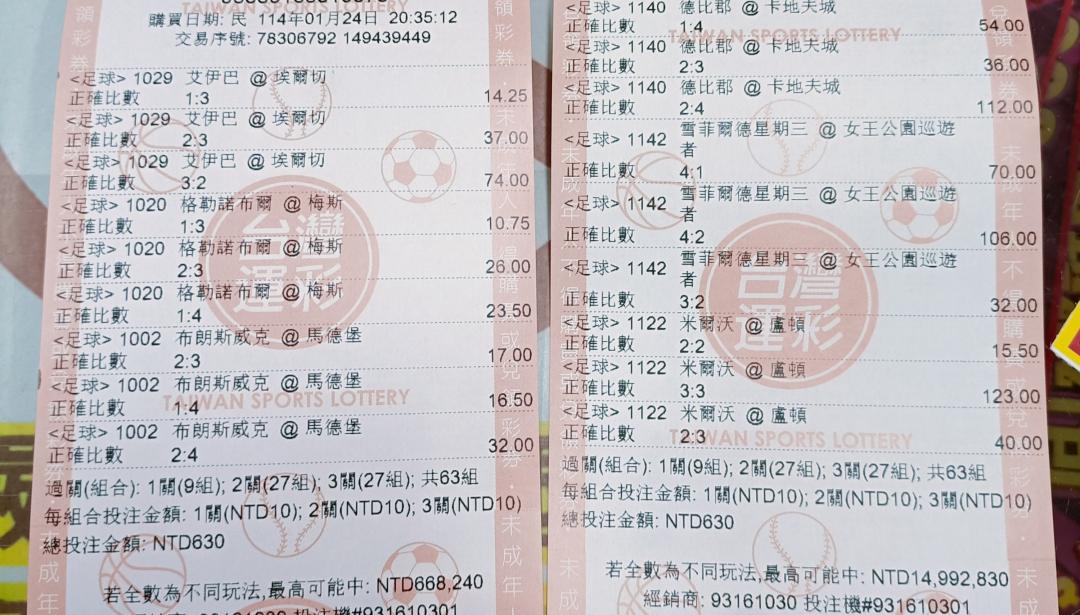 購買日期: 民 114年01月24日 20:35:12
交易序號: 78306792 149439449
<足球> 1029 艾伊巴 @ 埃爾切
正確比數 1:3 14.25
<足球> 1029 艾伊巴 @ 埃爾切
正確比數 2:3 37.00
<足球> 1029 艾伊巴 @ 埃爾切
正確比數 3:2 74.00
<足球> 1020 格勒諾布爾 @ 梅斯
正確比數 1:3 10.75
<足球> 1020 格勒諾布爾 @ 梅斯
正確比數 2:3 26.00
<足球> 1020 格勒諾布爾 @ 梅斯
正確比數 1:4 23.50
<足球> 1002 布朗斯威克 @ 馬德堡
正確比數 2:3 17.00
<足球> 1002 布朗斯威克 @ 馬德堡
正確比數 1:4 16.50
<足球> 1002 布朗斯威克 @ 馬德堡
正確比數 2:4 32.00
過關(組合): 1關(9組); 2關(27組); 3關(27組); 共63組
每組合投注金額: 1關(NTD10); 2關(NTD10); 3關(NTD10)
總投注金額: NTD630
若全數為不同玩法,最高可能中: NTD668,240
台灣運彩
TAIWAN SPORTS LOTTERY
<足球> 1140 德比郡 @ 卡地夫城
正確比數 1:4 54.00
TAIWAN SPORTS LOTTERY
<足球> 1140 德比郡 @ 卡地夫城
正確比數 2:3 36.00
<足球> 1140 德比郡 @ 卡地夫城
正確比數 2:4 112.00
<足球> 1142 雪菲爾德星期三 @ 女王公園巡遊
者
正確比數 4:1 70.00
<足球> 1142 雪菲爾德星期三 @ 女王公園巡遊
者
正確比數 4:2 106.00
<足球> 1142 雪菲爾德星期三 @ 女王公園巡遊
者
正確比數 3:2 32.00
<足球> 1122 米爾沃 @ 盧頓
正確比數 2:2 15.50
<足球> 1122 米爾沃 @ 盧頓
正確比數 3:3 123.00
<足球> 1122 米爾沃 @ 盧頓
正確比數 2:3 40.00
過關(組合): 1關(9組); 2關(27組); 3關(27組); 共63組
每組合投注金額: 1關(NTD10); 2關(NTD10); 3關(NTD10)
總投注金額: NTD630
若全數為不同玩法,最高可能中: NTD14,992,830
經銷商: 93161030 投注機#931610301
台灣運彩
TAIWAN SPORTS LOTTERY